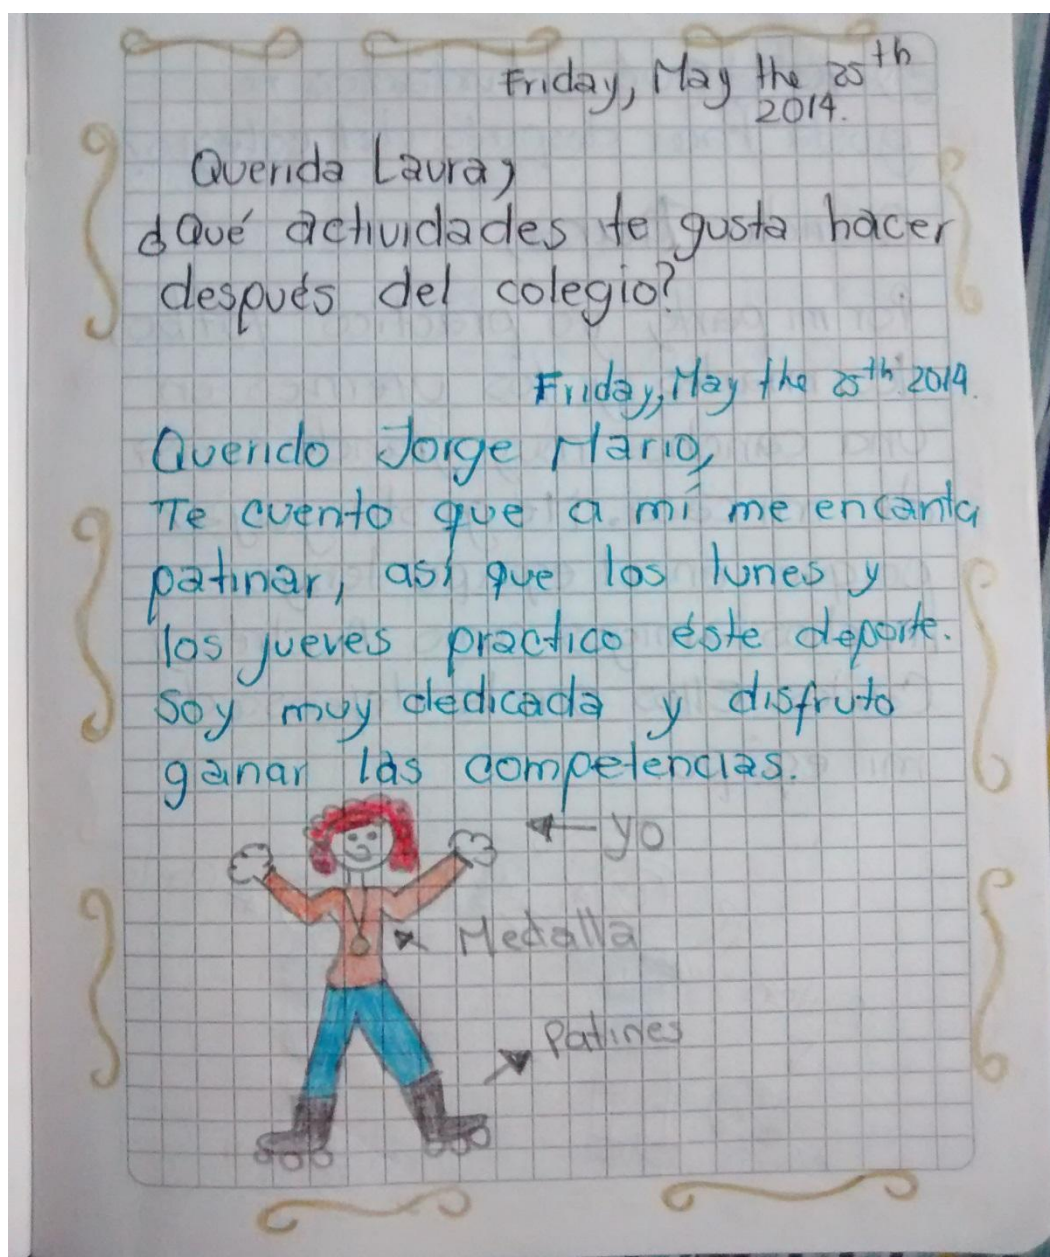 Friday, May the 25th
2014.
Querida Laura,
¿Qué actividades te gusta hacer
después del colegio?
Friday, May the 25th 2014.
Querido Jorge Mario,
Te cuento que a mí me encanta
patinar, así que los lunes y
los jueves practico éste deporte.
Soy muy dedicada y disfruto
ganar las competencias.
yo
Medalla
Patines